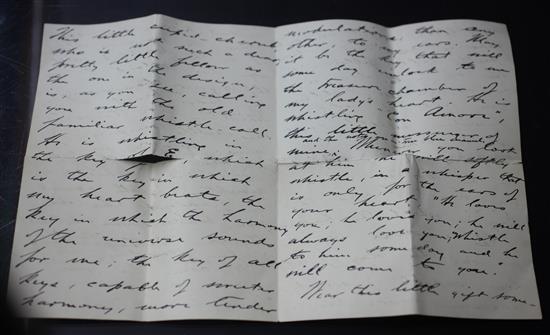 This little cupid-cherub,
who is not such a dear,
pretty little fellow as
the one in the design,
is, as you see, calling
you with the old
familiar whistle-call.
He is whistling in
the key of E, which
is the key in which
my heart beats, the
key in which the harmony
of the universe sounds
for me; the key of all
keys, capable of sweeter
harmony, more tender
modulations than any
other, to my ears. May
it be the key that will
some day unlock to me
the treasure chamber of
my lady's heart. He is
whistling Con Amore,
this little of
mine; When you look
at him he will softly
whistle, in a whisper that
is only for the ears of
your heart "He loves
you; he loves you; he will
always love you; Whistle
to him some day and he
will come to you."
Near this little gift some-